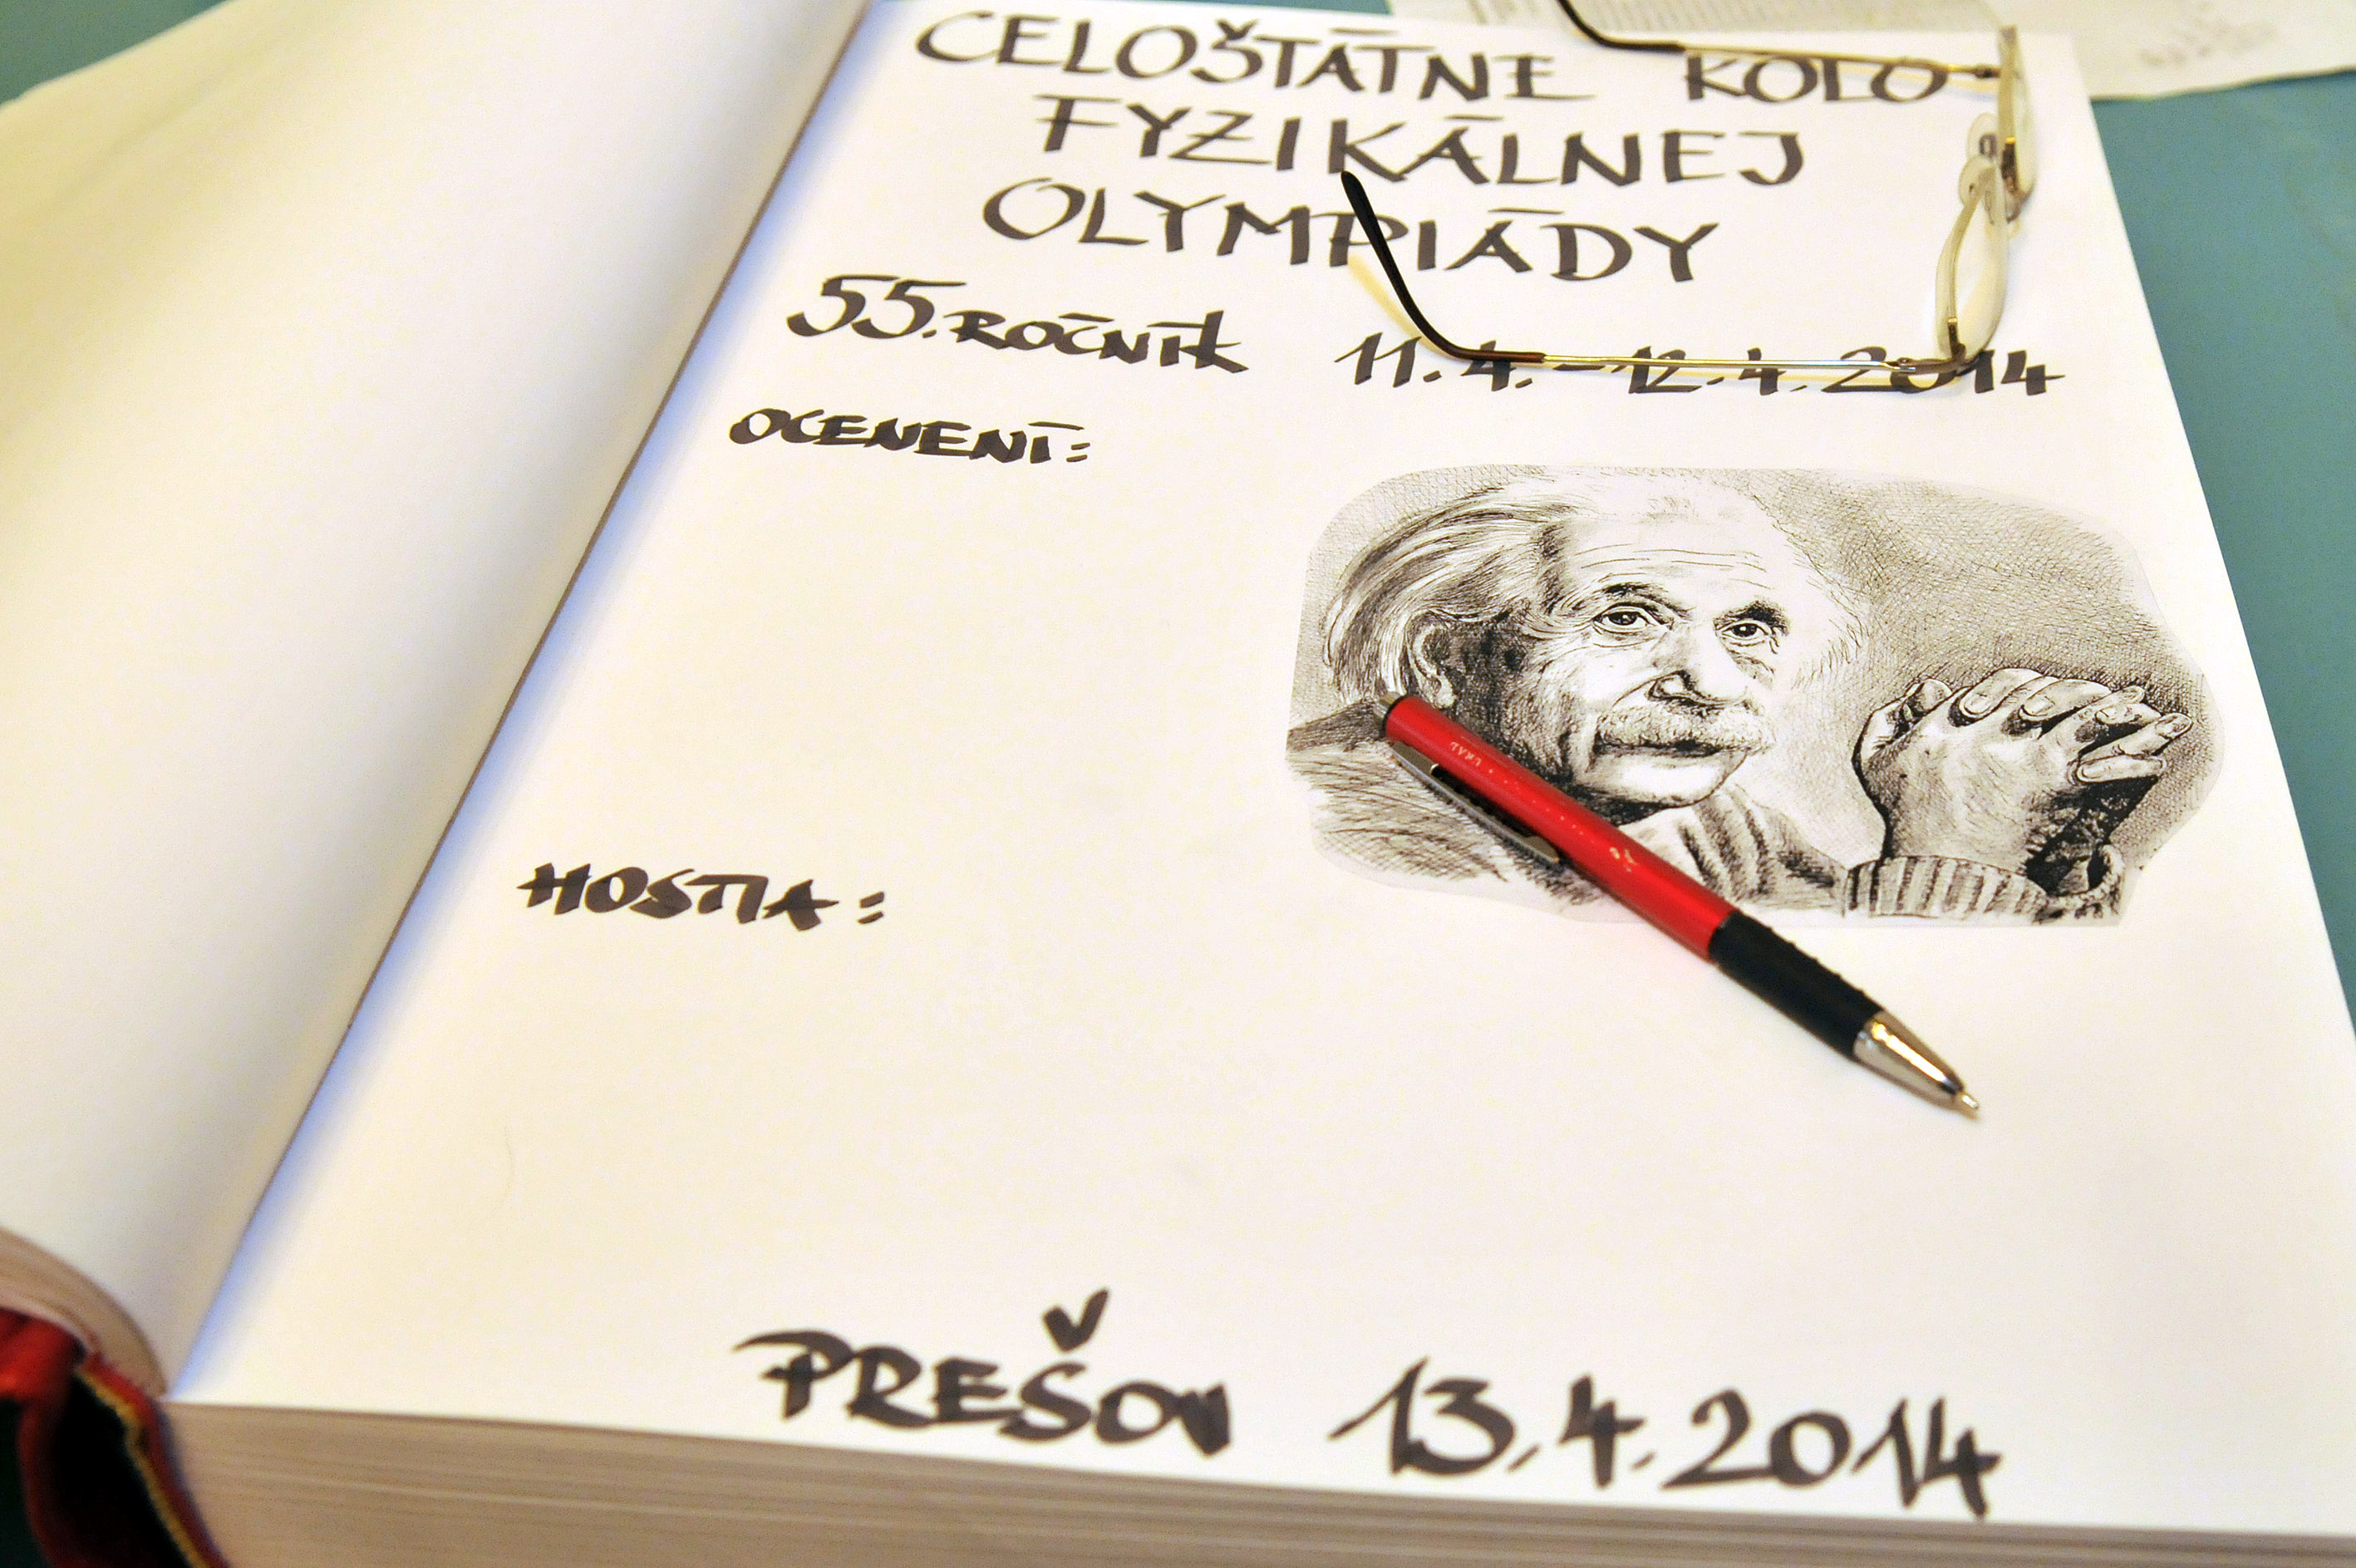 CELOŠTÁTNE KOLO
FYZIKÁLNEJ
OLYMPIÁDY
55. ROČNÍK 11.4.-12.4.2014
OCENENÍ:
HOSTIA:
PREŠOV 13.4.2014